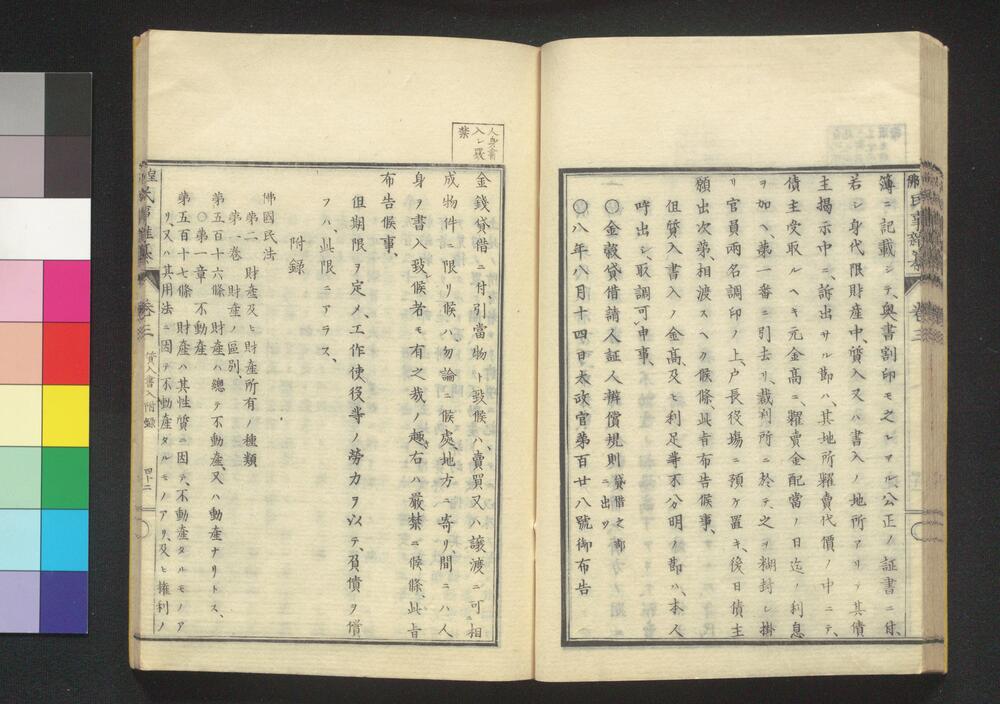 簿ニ記載シテ、奥書割印モ之レアル、公正ノ証書ニ付、
若シ身代限財産中、質入又ハ書入ノ地所アリテ其債
主掲示中ニ、訴出サル節ハ、其地所糶賣代價ノ中ニテ、
債主受取ルヘキ元金高ニ、糶賣金配當ノ日迄ノ利息
ヲ加ヘ、第一番ニ引去リ、裁判所ニ於テ、之ヲ糊封シ掛
リ官員兩名調印ノ上、戸長役場ニ預ケ置キ、後日債主
願出次第、相渡スヘク候條、此旨布告候事、
但質入書入ノ金高、及ヒ利足等不分明ノ節ハ、本人
呼出シ、取調可申事、
〇金穀貸借請人証人辨償規則 貸借之部ニ出ツ
〇八年八月十四日太政官第百廿八號御布告
人身書入ヲ嚴禁
金錢貸借ニ付、引當物ト致候ハ、賣買又ハ讓渡ニ可相
成物件ニ限リ候ハ勿論ニ候處、地方ニ寄リ、間ニハ人
身ヲ書入致候者モ有之哉ノ趣、右ハ嚴禁ニ候條、此旨
布告候事、
但期限ヲ定メ、工作使役等ノ勞力ヲ以テ、負債ヲ償
フハ、此限ニアラス、
附録
佛國民法
第二 財産及ヒ財産所有ノ種類
第一巻 財産ノ區別、
〇第一章 不動産
第五百十六條 財産ハ總テ不動産、又ハ動産ナリトス、
第五百十七條 財産ハ其性質ニ因テ、不動産タルモノア
リ、又ハ其用法ニ因テ不動産タルモノアリ、及ヒ權利ノ
巻三 質入書入附録 四十二